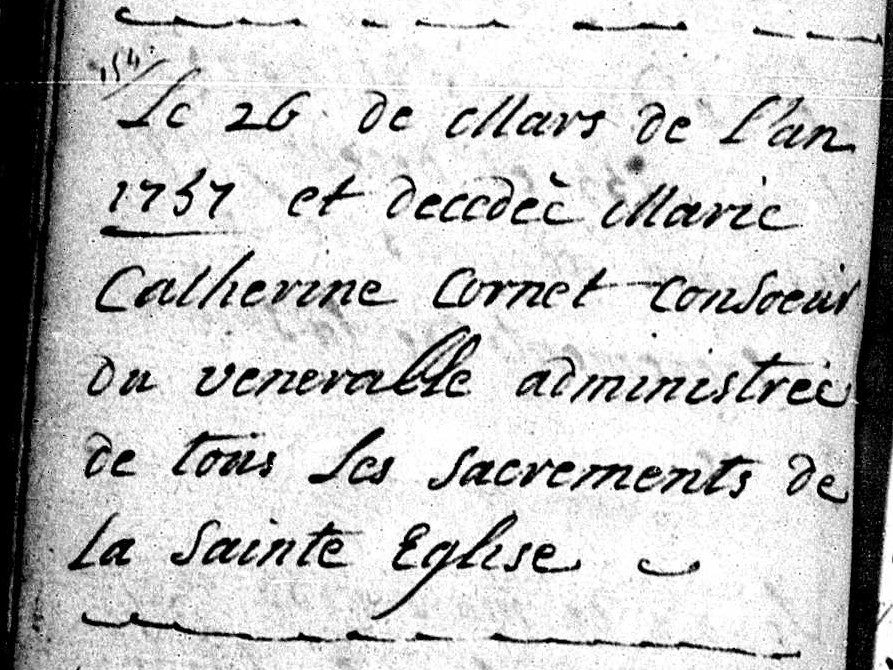 154
Le 26 de Mars de L'an
1757 et decedèe Marie
Catherine Cornet Consoeur
du venerable administrée
de tous les sacrements de
La Sainte Eglise